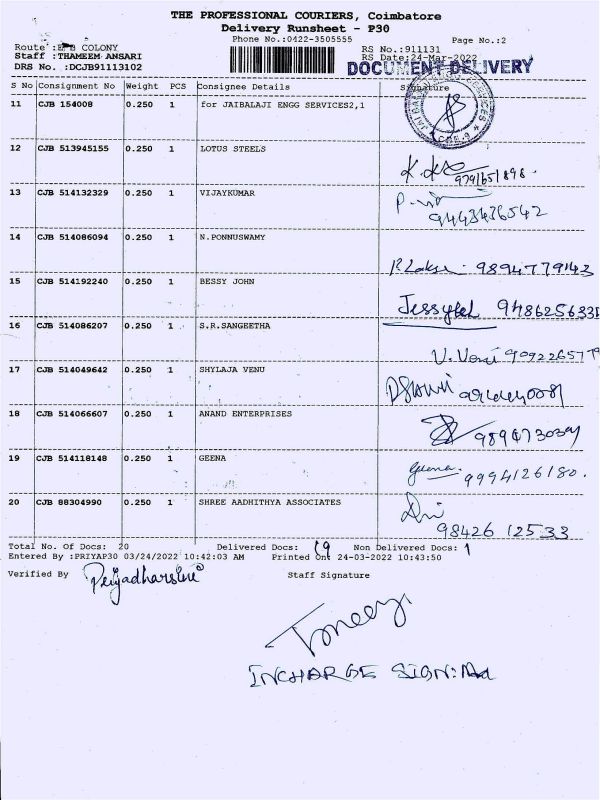 THE PROFESSIONAL COURIERS, Coimbatore
Delivery Runsheet - P30
Phone No.:0422-3505555 Page No.:2
Route : COLONY RS No.:911131
Staff :THAMEEM ANSARI RS Date:24-Mar-2022
DRS No. :DCJB91113102 DOCUMENT DELIVERY
S No Consignment No Weight PCS Consignee Details Signature
11 CJB 154008 0.250 1 for JAIBALAJI ENGG SERVICES2,1
12 CJB 513945155 0.250 1 LOTUS STEELS
13 CJB 514132329 0.250 1 VIJAYKUMAR
9443436542
14 CJB 514086094 0.250 1 N.PONNUSWAMY
9894779143
15 CJB 514192240 0.250 1 BESSY JOHN
948625633
16 CJB 514086207 0.250 1 S.R.SANGEETHA
17 CJB 514049642 0.250 1 SHYLAJA VENU
18 CJB 514066607 0.250 1 ANAND ENTERPRISES
19 CJB 514118148 0.250 1 GEENA Geena 9994126180.
20 CJB 88304990 0.250 1 SHREE AADHITHYA ASSOCIATES
98426 12533
Total No. Of Docs: 20 Delivered Docs: 19 Non Delivered Docs: 1
Entered By :PRIYAP30 03/24/2022 10:42:03 AM Printed On: 24-03-2022 10:43:50
Verified By Priyadharshini Staff Signature
INCHARGE SIGN: